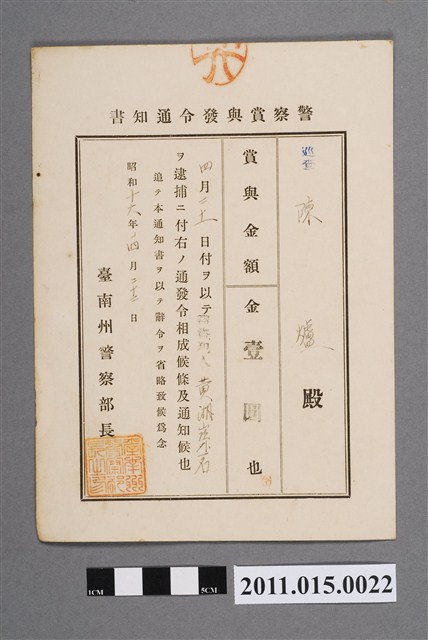 警察賞與發令通知書
巡查 陳 殿
賞與金額 金壹圓也
四月二十 日付ヲ以テ 黃
ヲ逮捕ニ付右ノ通發令相成候條及通知候也
追テ本通知書ヲ以テ辭令ヲ省略致候爲念
昭和十六年四月二十二日
臺南州警察部長
1CM
5CM
2011.015.0022